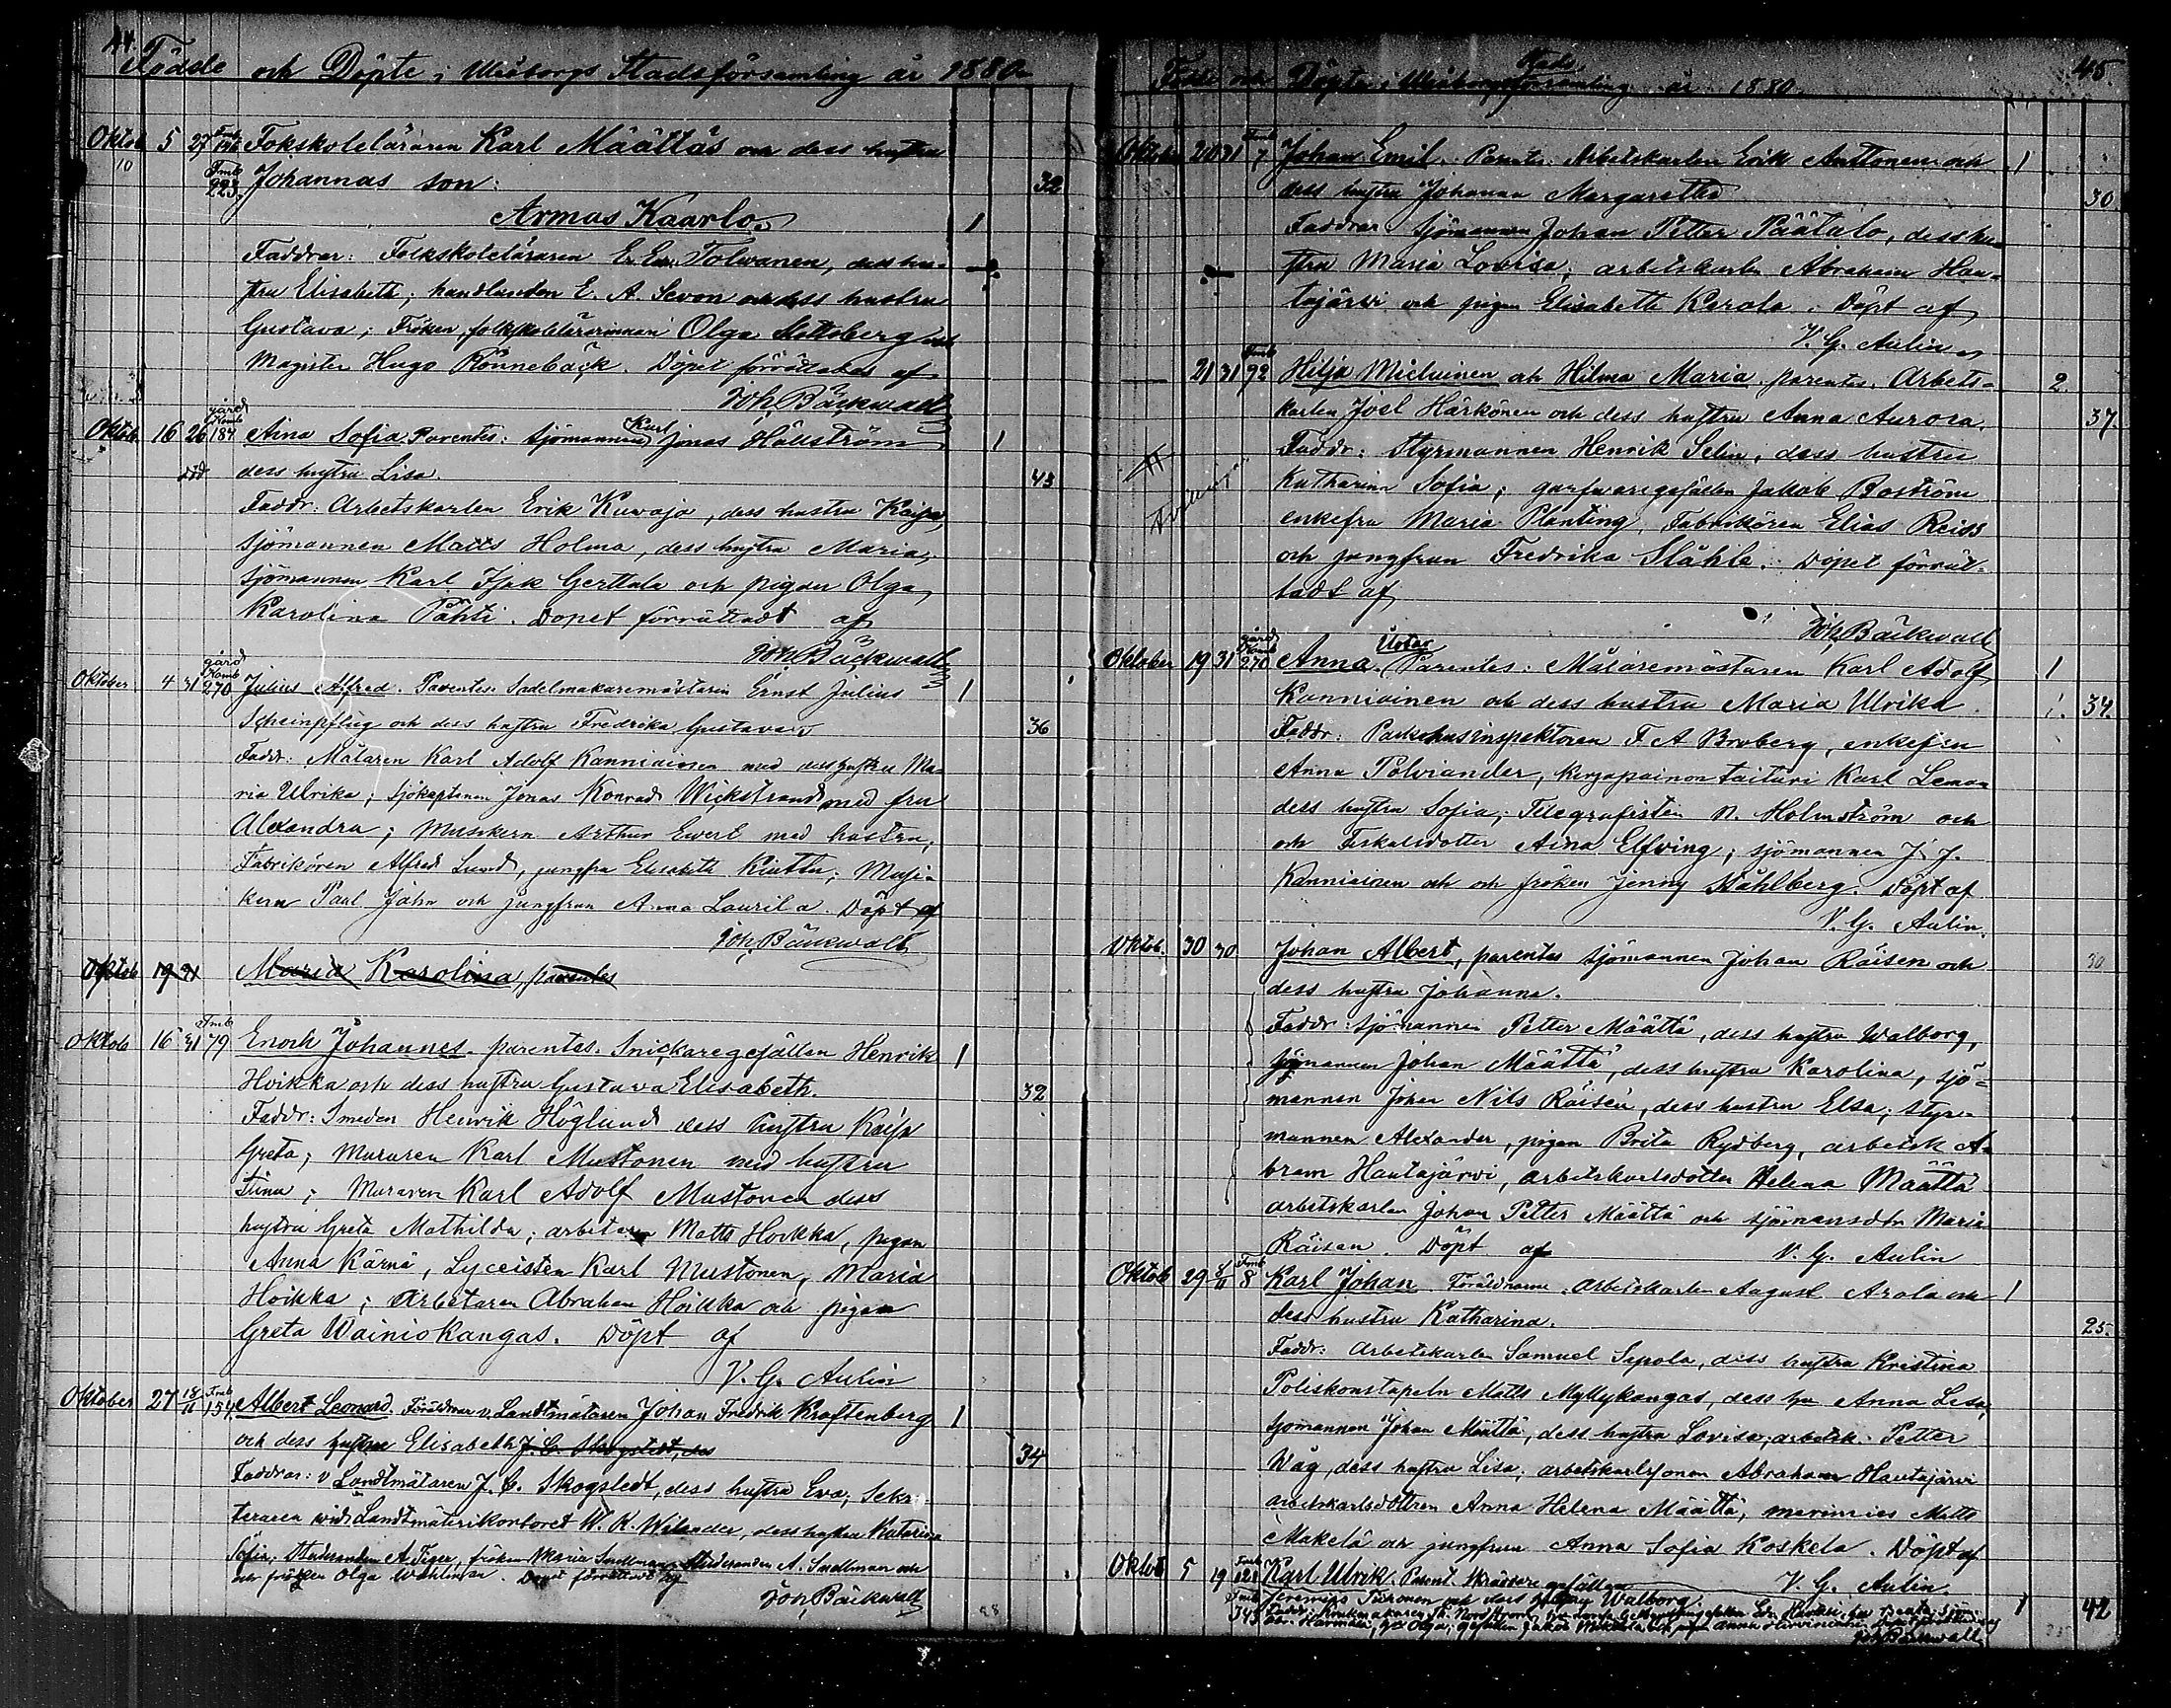 44.
Födde och Döpte i Uleåborgs Stadsförsamling år 1880
Oktob 5 27 Fmb 146 Fokskoleläraren Karl Määttäs och dess hustru
10 Fmb 223. Johannas son: 32
Armas Kaarlo. 1
Faddrar: Folkskoleläraren E. Em. Tolwanen, dess hu-
stru Elisabeth; handlanden E. A. Sevon och dess hustru
Gustava; Fröken, folkskolelärarinnan Olga och
Magister Hugo Rönnebäck. Döpet förrättades af
Joh. Bäckwall
Oktob. 16 26 gård Komb 184 Aina Sofia. Parentes: Sjömannen Karl Jonas Hällström, 1
dess hustru Lisa. 43
Faddr. Arbetskarlen Erik Kuwaja, dess hustru Kaisa,
Sjömannen Matts Holma, dess hustru Maria,
Sjömannen Karl Isak Gerttala och pigan Olga
Karolina Pähti. Dopet förrättadt af
Joh. Bäckwall
Oktober 4 31 gård Komb 270 Julius Alfred. Parentes: Sadelmakaremästaren Ernst Julius 1
Scheinpflug och dess hustru Fredrika Gustava 36
Faddr: Målaren Karl Adolf Kanniainen med dess hustru Ma-
ria Ulrika; Sjökaptenen Jonas Konrad Wickstrand med fru
Alexandra; Musikern Arthur Ewert med hustru,
Fabrikören Alfred Lund, jungfru Elisabeth; Musi-
kern Paul Jahn och jungfrun Anna Laurila. Döpt af
Joh. Bäckwall
Oktob 19 31 Maria Karolina, parentes
Oktob 16 31 Fmb 79 Enoch Johannes. parentes. Snickaregesällen Henrik 1
Hoikka och dess hustru Gustava Elisabeth. 32
Faddr: Smeden Henrik Höglund dess hustru Kaisa
Greta; Muraren Karl Mustonen med hustru
Stina; Muraren Karl Adolf Mustonen dess
hustru Greta Mathilda; arbetaren Matts Hoikka, pigan
Anna Kärnä, Lyceisten Karl Mustonen, Maria
Hoikka; Arbetaren Abraham Hoikka och pigan
Greta Wainiokangas. Döpt af
V. G. Aulin
Oktober 27 18/11 Fmb 154 Albert Leonard. Föräldrar v. Landtmätaren Johan Fredrik Kraftenberg 1
och dess hustru Elisabeth J. C. Skogstedt, des 34
Faddrar: v Landtmätaren J. C. Skogstedt, dess hustru Eva; Sekre-
teraren vid Landtmäterikontoret W. K. Wilander, dess hustru Katarina
Sofia, Studeranden A. Tiger, fröken Maria Snellman, Studeranden A. Snellman och
och fröken Olga. Dopet förrättadt af
Joh. Bäckwall
45.
Födde och Döpte i Uleåborgs Stads församling år 1880.
Oktober 20 31 Fmb 7 Johan Emil. Parentes: Arbetskarlen Erik Anttonen och 1
dess hustru Johanna Margaretha 30
Faddrar Sjömannen Johan Petter Päätalo, dess hu-
stru Maria Lovisa; arbetskarlen Abraham Hau-
tajärvi och pigan Elisabeth Karola. Döpt af
V. G. Aulin
— 21 31 Fmb 92 Hilja Mieluinen och Hilma Maria. parentes. Arbets- 2
karlen Joel Härkönen och dess hustru Anna Aurora. 37.
Faddr: Styrmannen Henrik Selin, dess hustru
Katharina Sofia; garfvaregesällen Jakob Boström
enkefru Maria Planting, Fabrikören Elias Reiss
och jungfrun Fredrika Ståhle. Döpet förrät-
tadt af
Joh. Bäckwall
Oktober 19 31 gård Komb 270 Anna. Parentes: Målaremästaren Karl Adolf 1
Kanniainen och dess hustru Maria Ulrika 1. 34.
Faddr: Packhusinspektoren F. A. Broberg, enkefru
Anna Polviander, kirjapainon taituri Karl Leman
dess hustru Sofia; Telegrafisten N. Holmström och
och Fiskalsdotter Aina Elfving; sjömannen J. J.
Kanniainen och och fröken Jenny Ståhlberg. Döpt af
V. G. Aulin.
Oktob. 30 30 Johan Albert, parentes sjömannen Johan Räisen och 30
dess hustru Johanna.
Faddr: sjömannen Petter Määttä, dess hustru Walborg,
sjömannen Johan Määttä, dess hustru Karolina, sjö-
mannen Johan Nils Räisén, dess hustru Elsa; Styr-
mannen Alexander, pigan Brita Rydberg, arbetsk A-
bram Hautajärvi, Arbetskarlsdotter Helena Määttä
arbetskarlen Johan Petter Määttä och sjömansdtr Maria
Räisen. Döpt af V. G. Aulin
Oktob 29 8/11 Fmb 8 Karl Johan Föräldrarne. Arbetskarlen August Arola och 1
dess hustru Katharina. 25.
Faddr. Arbetskarlen Samuel Sepola, dess hustru Kristina
Poliskonstapeln Matts Myllykangas, dess hu Anna Lisa,
Sjömannen Johan Määttä, dess hustru Lovisa, arbetsk. Petter
Wåg, dess hustru Lisa, arbetskarlssonen Abraham Hautajärvi
arbetskarlsdottren Anna Helena Määttä, merimies Matts
Makelä och jungfrun Anna Sofia Koskela. Döpt af
V. G. Aulin
Oktob 5 19 Fmb 121 Karl Ulrik. Parent. Skräddaregesällen
Fmb 343 Jeremias Tuhonen och dess hustru Walborg. 1 42
Joh. Bäckwall